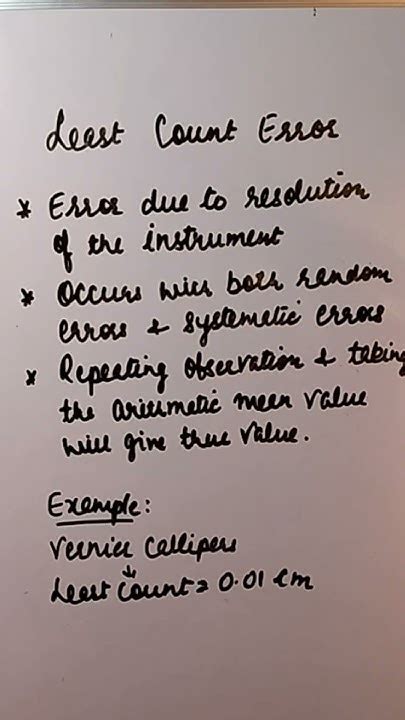 Least Count Error
* Error due to resolution
of the instrument
* Occurs with both random
errors & systematic errors
* Repeating observation & taking
the arithmetic mean value
will give true value.
Example:
Vernier Callipers
↓
Least Count = 0.01 cm